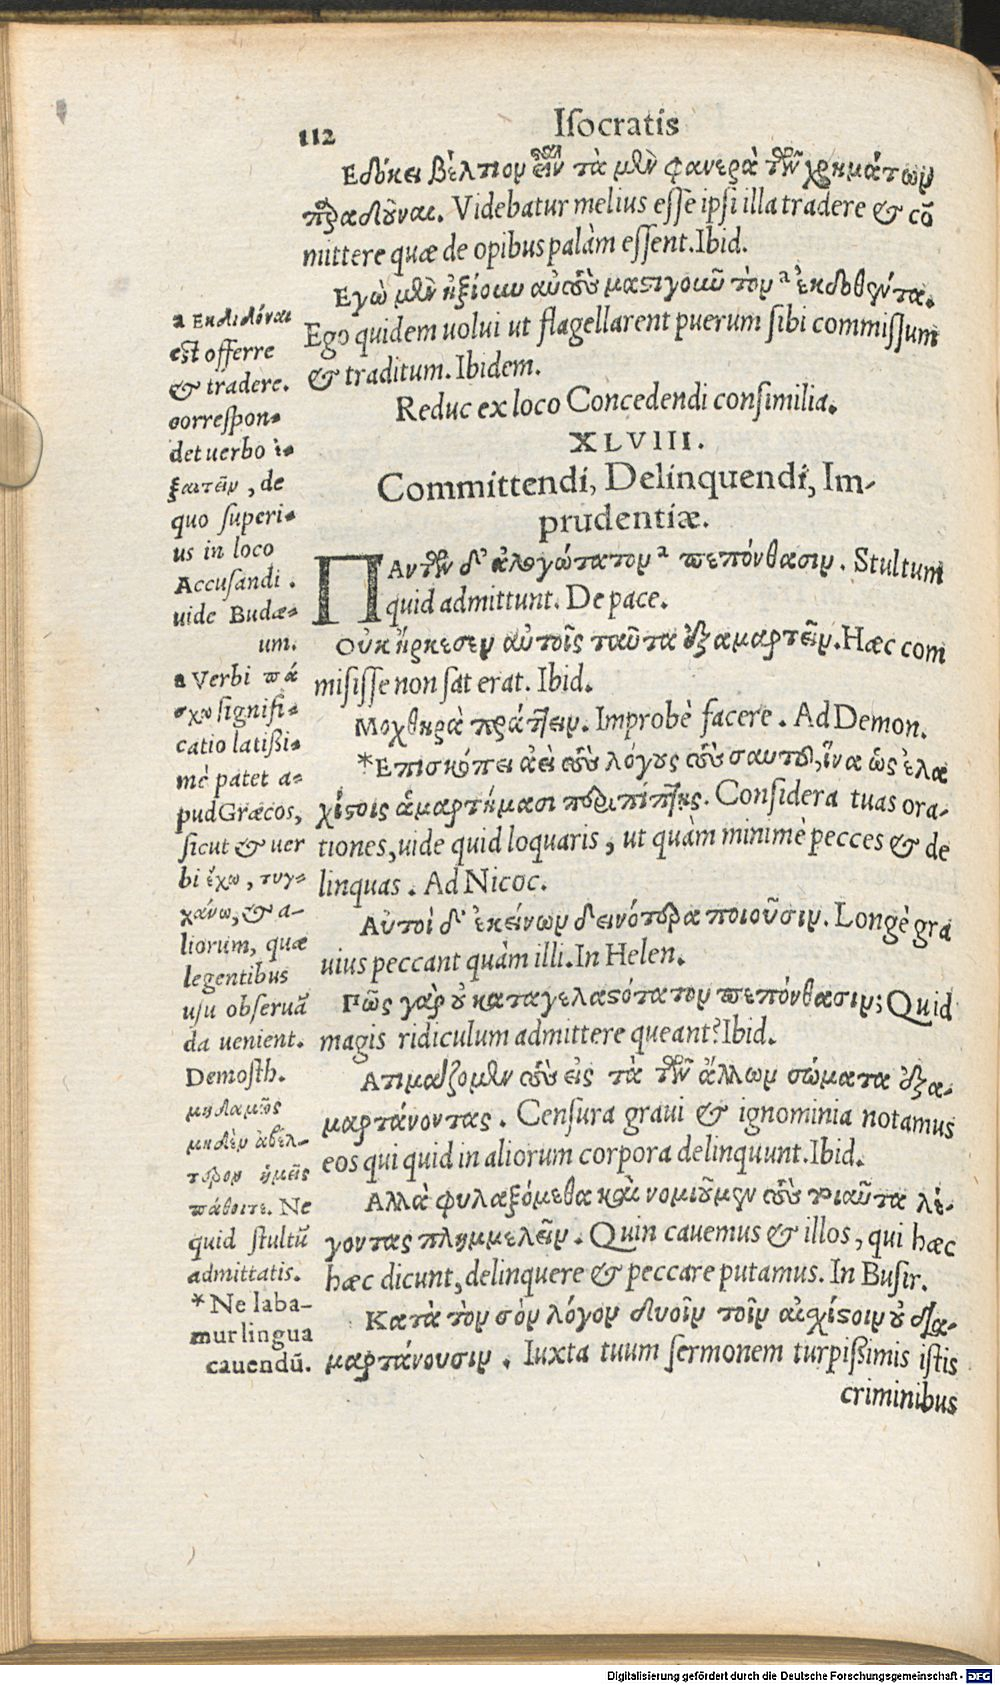 112
Isocratis
Εδόκει βέλτιον εἶναι τὰ μὲν φανερὰ τῶν χρημάτων
παραδοῦναι. Videbatur melius esse ipsi illa tradere & cō
mittere quæ de opibus palàm essent. Ibid.
Εγὼ μὲν ἠξίουν αὐτοὺς μαστιγοῦν τὸν ª ἐκδοθέντα.
Ego quidem uolui ut flagellarent puerum sibi commissum
& traditum. Ibidem.
Reduc ex loco Concedendi consimilia.
XLVIII.
Committendi, Delinquendi, Im-
prudentiæ.
ΠΑντῶν δ' ἀλογώτατον ª πεπόνθασιν. Stultum
quid admittunt. De pace.
Οὐκ ἤρκεσεν αὐτοῖς ταῦτα ἐξαμαρτεῖν. Hæc com
misisse non sat erat. Ibid.
Μοχθηρὰ πράττειν. Improbè facere. Ad Demon.
*Επισκόπει ἀεὶ τοὺς λόγους τοὺς σαυτοῦ, ἵνα ὡς ἐλα
χίστοις ἁμαρτήμασι περιπίπτῃς. Considera tuas ora-
tiones, uide quid loquaris, ut quàm minimè pecces & de
linquas. Ad Nicoc.
Αὐτοὶ δ' ἐκείνων δεινότερα ποιοῦσιν. Longè gra
uius peccant quàm illi. In Helen.
Πῶς γὰρ οὐ καταγελαστότατον πεπόνθασιν; Quid
magis ridiculum admittere queant? Ibid.
Ατιμάζομεν τοὺς εἰς τὰ τῶν ἄλλων σώματα ἐξα-
μαρτάνοντας. Censura graui & ignominia notamus
eos qui quid in aliorum corpora delinquunt. Ibid.
Αλλὰ φυλαξόμεθα καὶ νομιοῦμεν τοὺς τοιαῦτα λέ-
γοντας πλημμελεῖν. Quin cauemus & illos, qui hæc
hæc dicunt, delinquere & peccare putamus. In Busir.
Κατὰ τὸν σὸν λόγον δυοῖν τοῖν αἰσχίστοιν οὐ δια-
μαρτάνουσιν. Iuxta tuum sermonem turpißimis istis
criminibus
a Εκδιδόναι
est offerre
& tradere.
correspon-
det uerbo ἐ-
ξαιτεῖν, de
quo superi-
us in loco
Accusandi.
uide Budæ-
um.
a Verbi πά
σχω signifi-
catio latißi-
mè patet a-
pud Græcos,
sicut & uer
bi ἔχω, τυγ-
χάνω, & a-
liorum, quæ
legentibus
usu obseruā
da uenient.
Demosth.
μηδαμῶς
μηδὲν ἀβέλ-
τερον ὑμεῖς
πάθοιτε. Ne
quid stultū
admittatis.
*Ne laba-
mur lingua
cauendū.
Digitalisierung gefördert durch die Deutsche Forschungsgemeinschaft - DFG